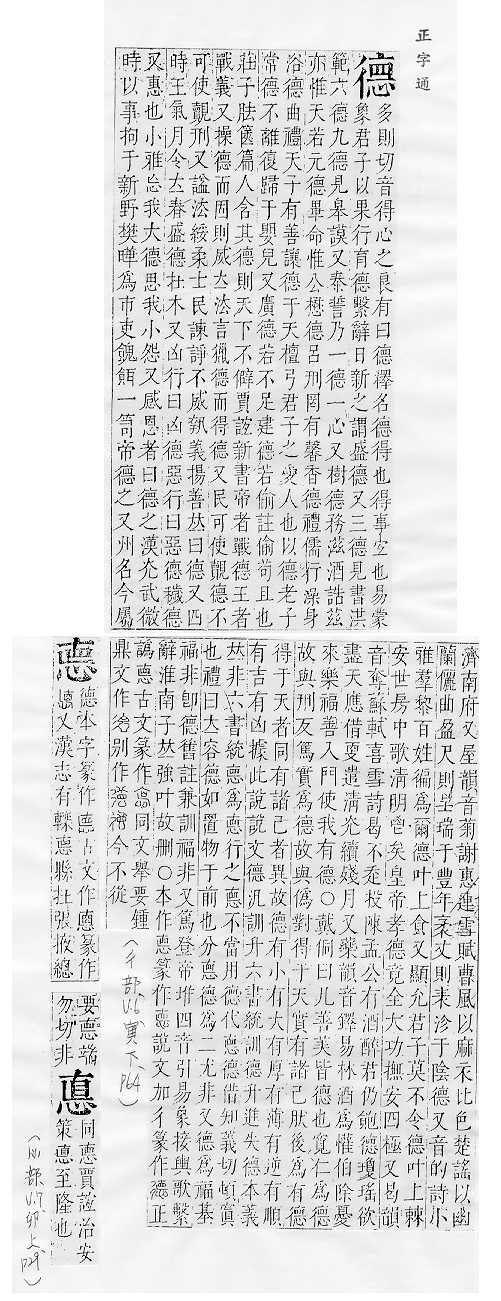 正字通
德 多則切音得心之良有曰德擇名德得也得事宜也易蒙
象君子以果行育德繫辭日新之謂盛德又三德見書洪
範六德九德見皋謨又泰誓乃一德一心又樹德務滋酒誥茲
亦惟天若元德畢命惟公懋德呂刑罔有馨香德禮儒行澡身
浴德曲禮天子有善讓德于天檀弓君子之愛人也以德老子
常德不離復歸于嬰兒又廣德若不足建德若偷註偷苟且也
莊子胠篋篇人含其德則天下不僻賈誼新書帝者戰德王者
戰義又操德而固則威𠀤法言獵德而得德又民可使覿德不
可使覿刑又謚法綏柔士民諫諍不威執義揚善𠀤曰德又四
時王氣月令立春盛德在木又凶行曰凶德惡行曰惡德穢德
又惠也小雅忘我大德思我小怨又感恩者曰德之漢光武微
時以事拘于新野樊曄爲市吏餽餌一笥帝德之又州名今屬
濟南府又屋韻音菊謝惠連雪賦曹風以麻衣比色楚謠以幽
蘭儷曲盈尺則呈瑞于豐年袤丈則表沴于陰德又音的詩小
雅羣黎百姓徧爲爾德叶上食又顯允君子莫不令德叶上棘
安世房中歌清明鬯矣皇帝孝德竟全大功撫安四極又曷韻
音奪蘇軾喜雪詩曷不走投陳孟公有酒醉君仍飽德瓊瑤欲
盡天應借更遣清光續殘月又藥韻音鐸易林酒爲懽伯除憂
來樂福善入門使我有德○戴侗曰凡善美皆德也寬仁爲德
故與刑反篤實爲德故與僞對得于天實有諸己肰後爲有德
得于天者同有諸己者異故德有小有大有厚有薄有逆有順
有吉有凶據此說說文德汎訓升六書統訓德升進失德本義
𠀤非六書統悳爲悳行之悳不當用德代悳德借知義切頓實
也禮曰立容德如置物于前也分悳德爲二尤非又德爲福基
福非卽德舊註兼訓福非又篤登帝堆四音引易象接輿歌繫
辭淮南子𠀤強叶故刪○本作悳篆作悳說文加彳篆作德正
譌悳古文篆作悳同文舉要鍾
鼎文作別作今不從
(彳部 V.6 寅下, P64)
悳 德本字篆作悳古文作悳篆作
又漢志有轑悳縣在張掖總
要悳端
勿切非
惪 同悳賈誼治安
策惪至隆也
(心部, V.7, 卯上, P29)